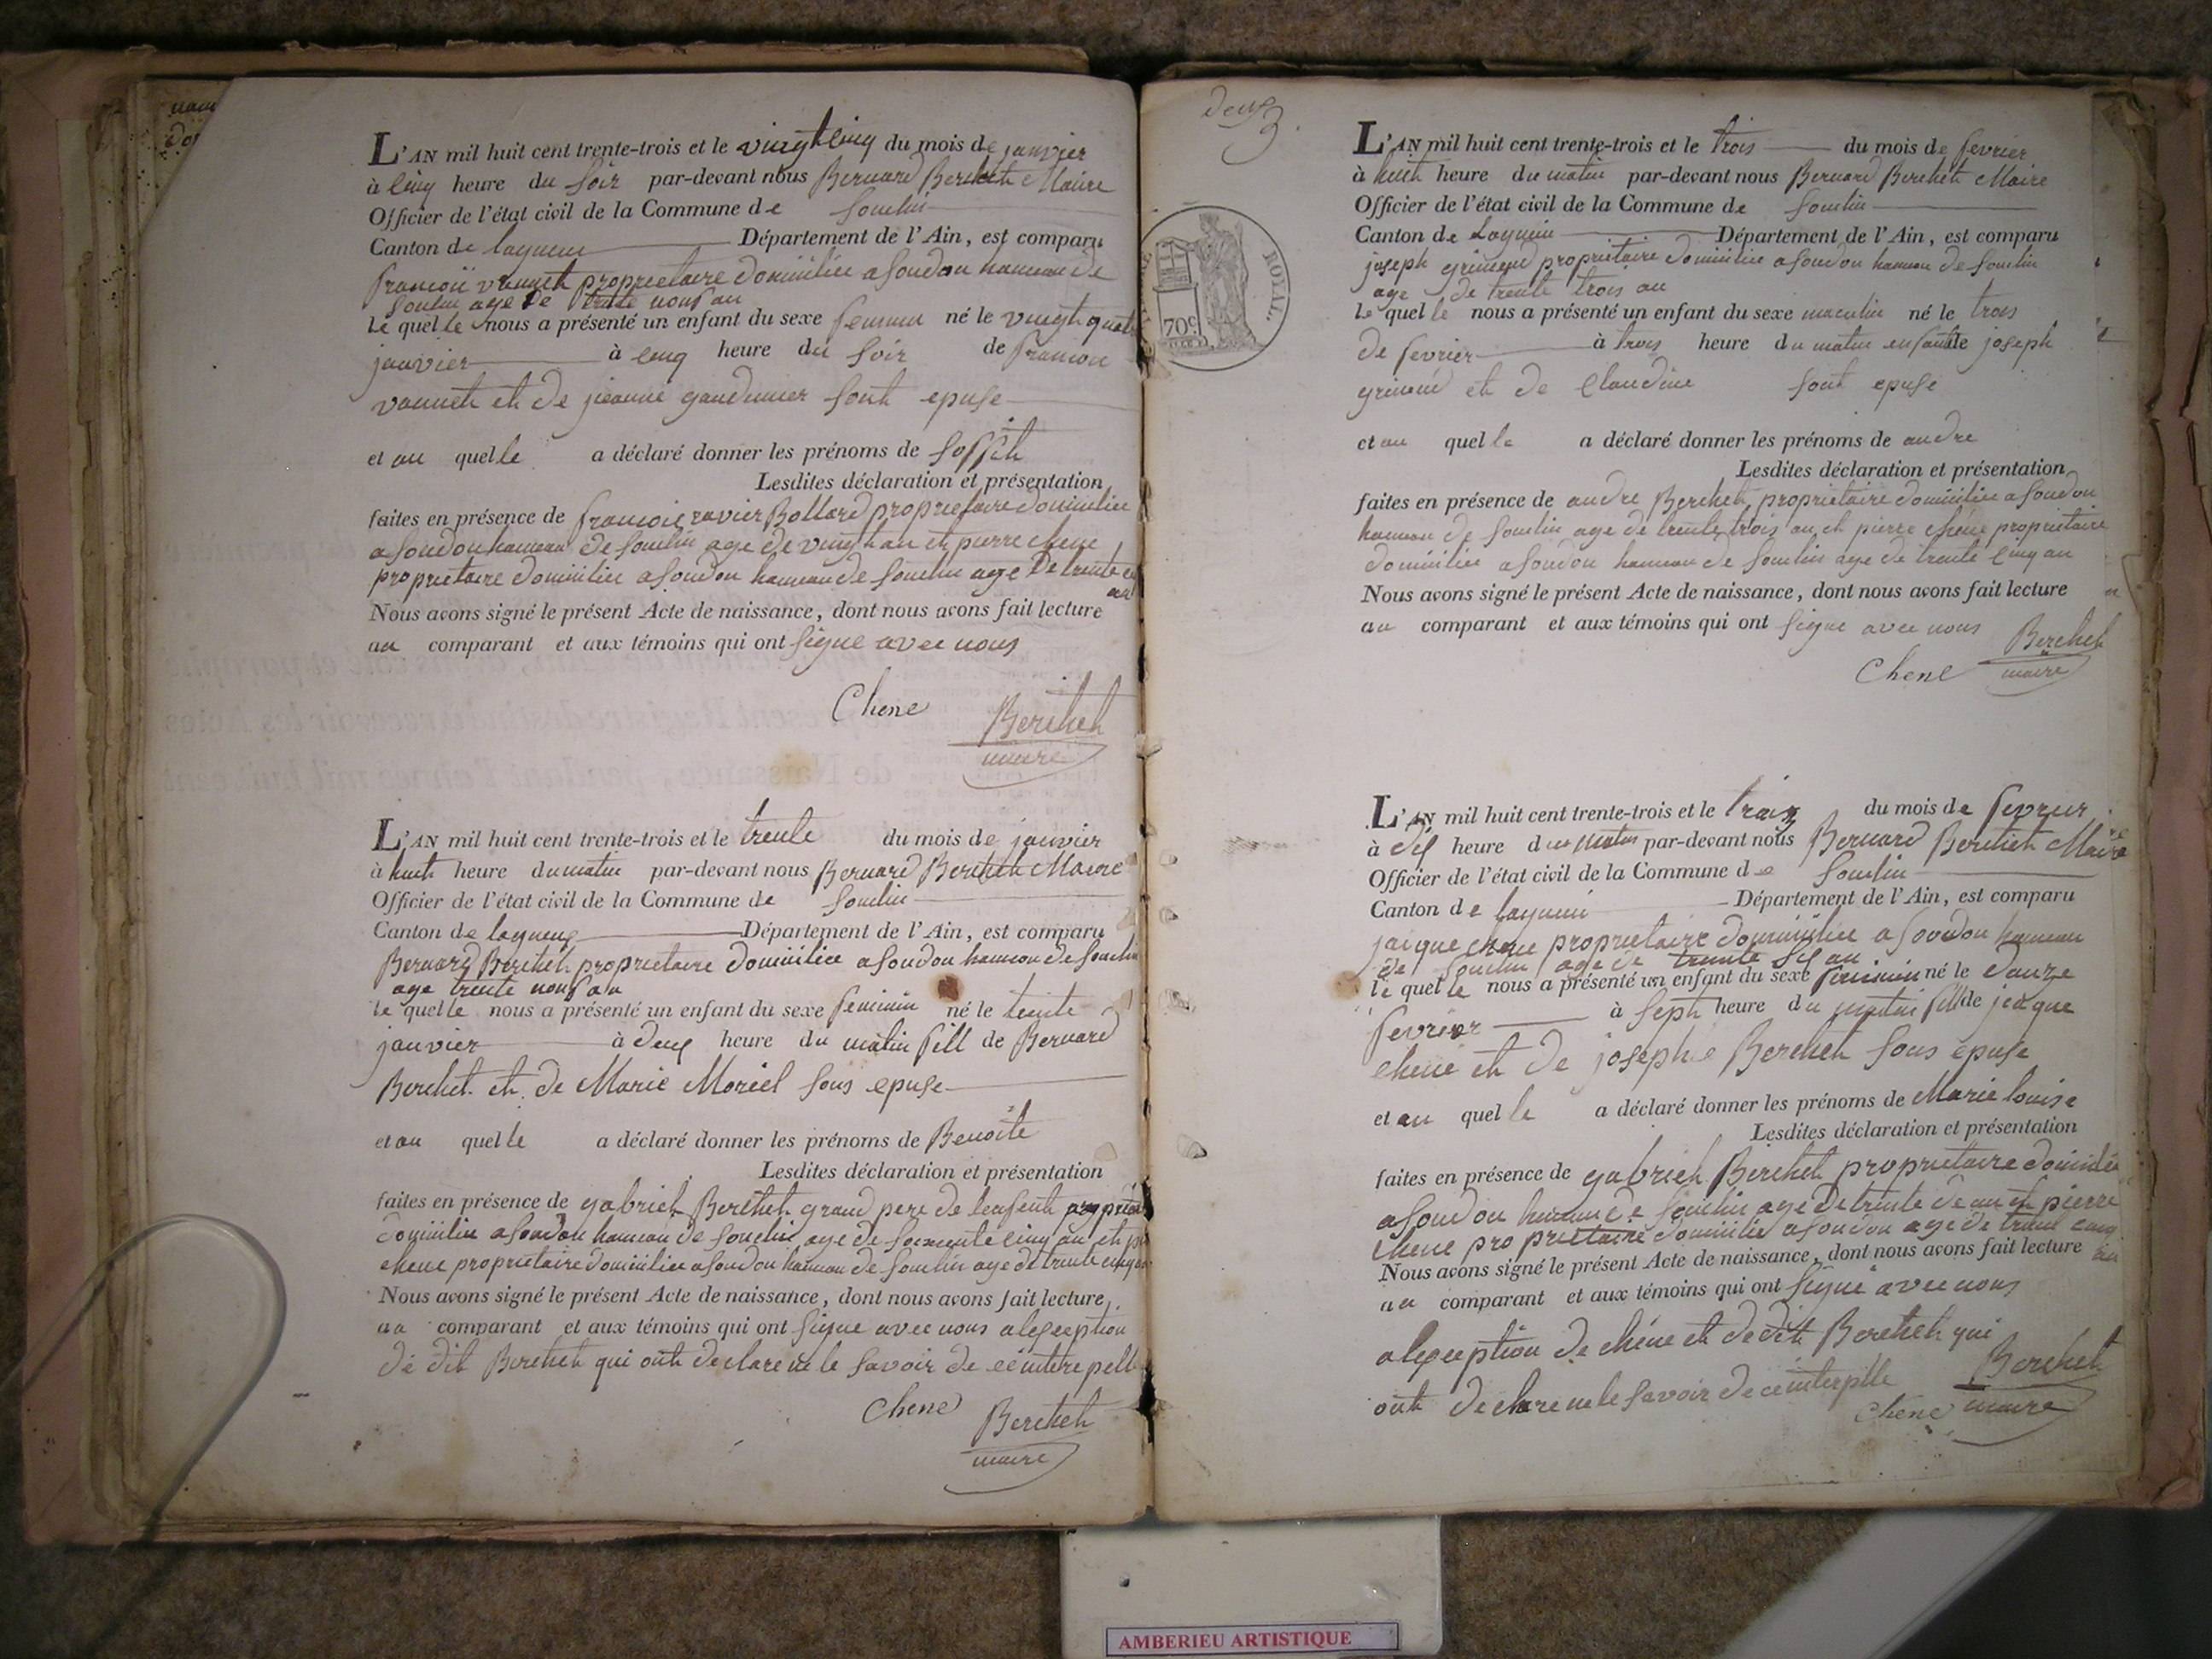 L'AN mil huit cent trente-trois et le vingt cinq du mois de janvier
à cinq heure du soir par-devant nous Bernard Berchet Maire
Officier de l'état civil de la Commune de souclin
Canton de lagneu Département de l'Ain, est comparu
françoi vannet proprietaire domicilie a soudon hameau de
souclin age de trente nonf an
le quel le nous a présenté un enfant du sexe né le vingt quatre
janvier à cinq heure du soir de
vannet et de jeanne sont epuse
et au quel le a déclaré donner les prénoms de
Lesdites déclaration et présentation
faites en présence de françois Bollard proprietaire domicilie
a soudon hameau de souclin age de vingt an et pierre chene
proprietaire domicilie a soudon hameau de souclin age de trente
an
Nous avons signé le présent Acte de naissance, dont nous avons fait lecture
au comparant et aux témoins qui ont signe avec nous
Chene
Berchet
maire
L'AN mil huit cent trente-trois et le trente du mois de janvier
à huit heure du matin par-devant nous Bernard Berchet Maire
Officier de l'état civil de la Commune de souclin
Canton de lagneu Département de l'Ain, est comparu
Bernard Berchet proprietaire domicilie a soudon hameau de souclin
age trente nonf an
le quel le nous a présenté un enfant du sexe feminin né le trente
janvier à deux heure du matin fill de Bernard
Berchet et de Marie Moriel sous epuse
et au quel le a déclaré donner les prénoms de Benoite
Lesdites déclaration et présentation
faites en présence de gabriel Berchet grand pere de lenfent
domicilie a soudon hameau de souclin age de cinq an et
chene proprietaire domicilie a soudon hameau de souclin age de trente cinq an
Nous avons signé le présent Acte de naissance, dont nous avons fait lecture
au comparant et aux témoins qui ont signe avec nous
de dit Berchet qui ont declare ne le savoir de
chene
Berchet
maire
deux
3
ROYAL.
70 c.
L'AN mil huit cent trente-trois et le trois du mois de fevrier
à huit heure du matin par-devant nous Bernard Berchet Maire
Officier de l'état civil de la Commune de souclin
Canton de Département de l'Ain, est comparu
joseph proprietaire domicilie a soudon hameau de souclin
age de trente trois an
le quel le nous a présenté un enfant du sexe né le trois
de fevrier à trois heure du matin de joseph
et de Claudine sont epuse
et au quel le a déclaré donner les prénoms de andre
Lesdites déclaration et présentation
faites en présence de andre Berchet proprietaire domicilie a soudon
hameau de souclin age de trente trois an et pierre chene proprietaire
domicilie a soudon hameau de souclin age de trente cinq an
Nous avons signé le présent Acte de naissance, dont nous avons fait lecture
au comparant et aux témoins qui ont signe avec nous
Berchet
Chene
maire
L'AN mil huit cent trente-trois et le du mois de fevrier
à heure du matin par-devant nous Bernard Berchet Maire
Officier de l'état civil de la Commune de souclin
Canton de Département de l'Ain, est comparu
jaique chene proprietaire domicilie a soudon hameau
de souclin age de trente an
le quel le nous a présenté un enfant du sexe feminin né le
fevrier à sept heure du matin fill de jaque
chene et de josephe Berchet sous epuse
et au quel le a déclaré donner les prénoms de Marie louise
Lesdites déclaration et présentation
faites en présence de gabriel Berchet proprietaire domicilie
a soudon hameau de souclin age de trente an et pierre
chene proprietaire domicilie a soudon age de trent cinq
an
Nous avons signé le présent Acte de naissance, dont nous avons fait lecture
au comparant et aux témoins qui ont signe avec nous
de chene et de dit Berchet qui
ont declare ne le savoir de
Berchet
Chene
maire
AMBERIEU ARTISTIQUE